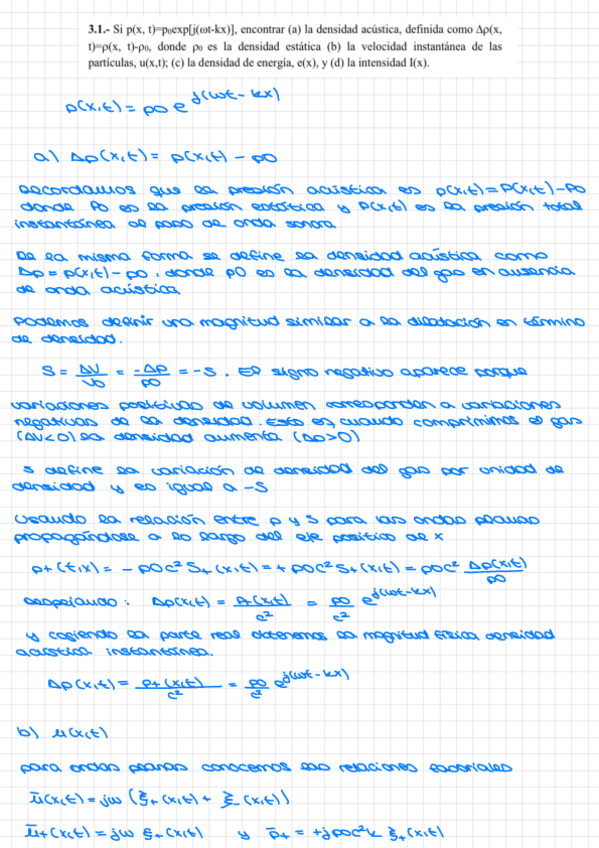 3.1.- Si p(x, t)=p₀exp[j(ωt-kx)], encontrar (a) la densidad acústica, definida como Δρ(x,
t)=ρ(x, t)-ρ₀, donde ρ₀ es la densidad estática (b) la velocidad instantánea de las
partículas, u(x,t); (c) la densidad de energía, e(x), y (d) la intensidad I(x).
p(x,t) = p0 e^j(ωt - kx)
a) Δρ(x,t) = ρ(x,t) - ρ0
Recordamos que la presión acústica es p(x,t) = P(x,t) - P0
donde P0 es la presión estática y P(x,t) es la presión total
instantánea al paso de onda sonora.
De la misma forma se define la densidad acústica como
Δρ = ρ(x,t) - ρ0, donde ρ0 es la densidad del gas en ausencia
de onda acústica
Podemos definir una magnitud similar a la dilatación en término
de densidad.
S = ΔV/V0 = -Δρ/ρ0 = -s. El signo negativo aparece porque
variaciones positivas de volumen corresponden a variaciones
negativas de la densidad. Esto es, cuando comprimimos el gas
(ΔV<0) la densidad aumenta (Δρ>0)
s define la variación de densidad del gas por unidad de
densidad y es igual a -S
Usando la relación entre p y S para las ondas planas
propagándose a lo largo del eje positivo de x
p+ (t,x) = - ρ0c² S+ (x,t) = + ρ0c² s+ (x,t) = ρ0c² Δρ(x,t)/ρ0
despejando : Δρ(x,t) = p+(x,t)/c² = p0/c² e^j(ωt-kx)
y cogiendo la parte real obtenemos la magnitud física densidad
acústica instantánea.
Δρ(x,t) = p+(x,t)/c² = p0/c² e^j(ωt - kx)
b) u(x,t)
para ondas planas conocemos las relaciones
ū(x,t) = jω (ξ+ (x,t) + ξ- (x,t))
ū+(x,t) = jω ξ+ (x,t) y p̄+ = +jρ0c²k ξ+ (x,t)